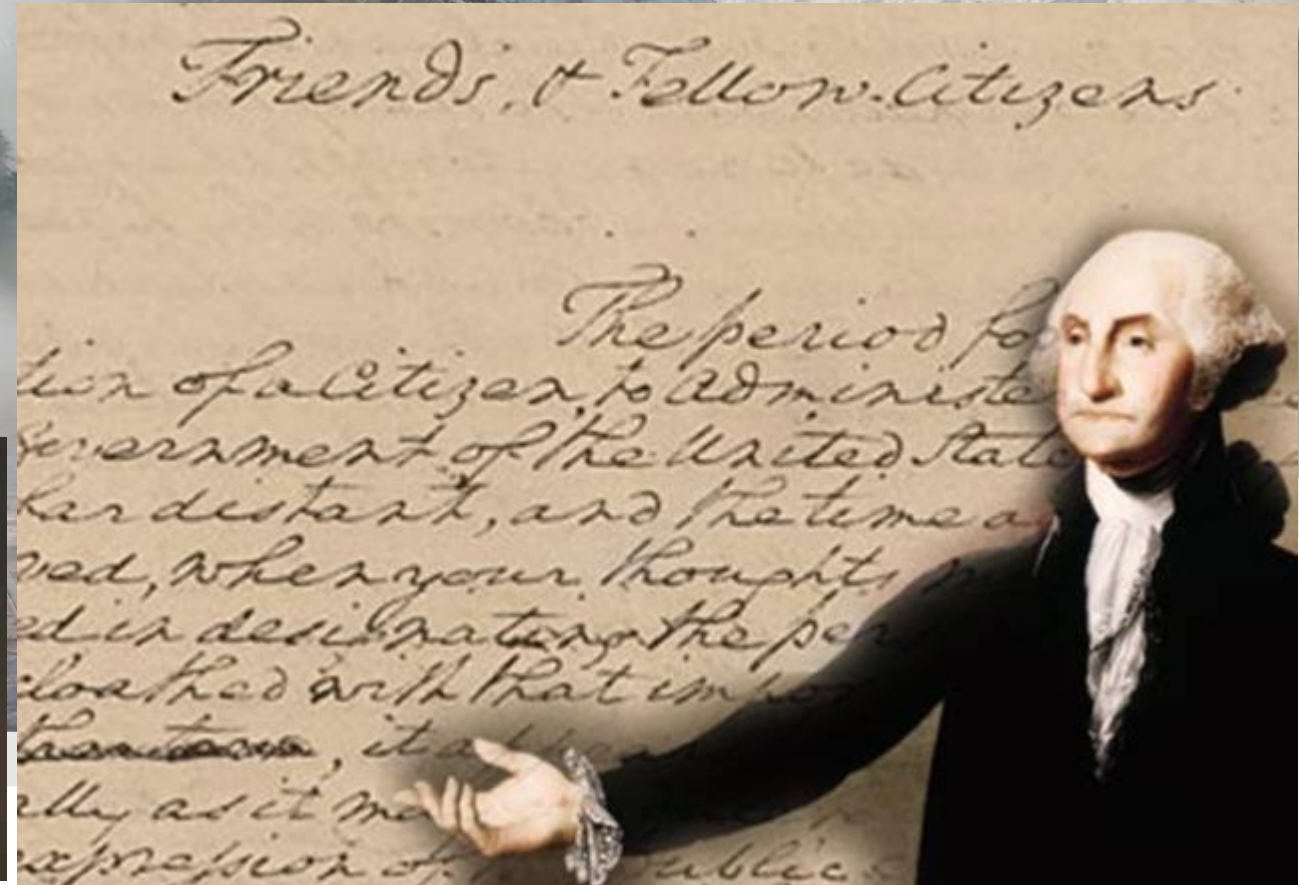 Friends, & Fellow-Citizens
The period fo
tion of a Citizen, to administe
overnment of the United State
far distant, and the time a
ved, when your thoughts
ed in designating the per
cloathed with that impor
, it appea
ally as it m
expression of ublic